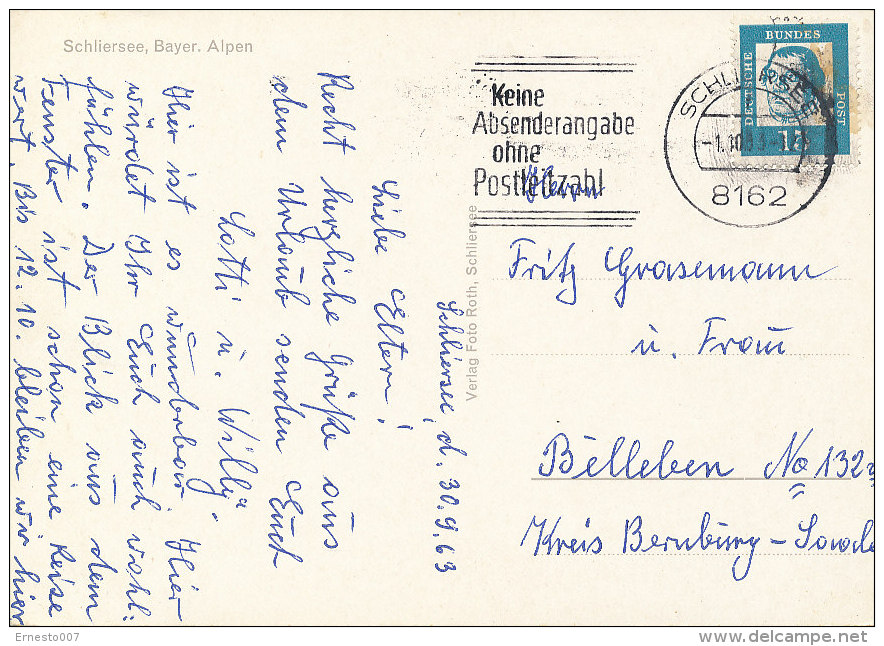 Schliersee, Bayer. Alpen
Schliersee, d. 30.9.63
Liebe Eltern!
Recht herzliche Grüße aus
dem Urlaub senden Euch
Lotti u. Willy.
Hier ist es wunderbar. Hier
würdet Ihr Euch auch wohl-
fühlen. Der Blick aus dem
Fenster ist schon eine Reise
wert. Bis 12.10. bleiben wir hier
Verlag Foto Roth, Schliersee
Keine
Absenderangabe
ohne
Postleitzahl
SCHLIERSEE
8162
DEUTSCHE
BUNDES
POST
15
Herrn
Fritz Grasemann
u. Frau
Belleben No 132
Kreis Bernburg-Saale
Ernesto007
delcampe.net